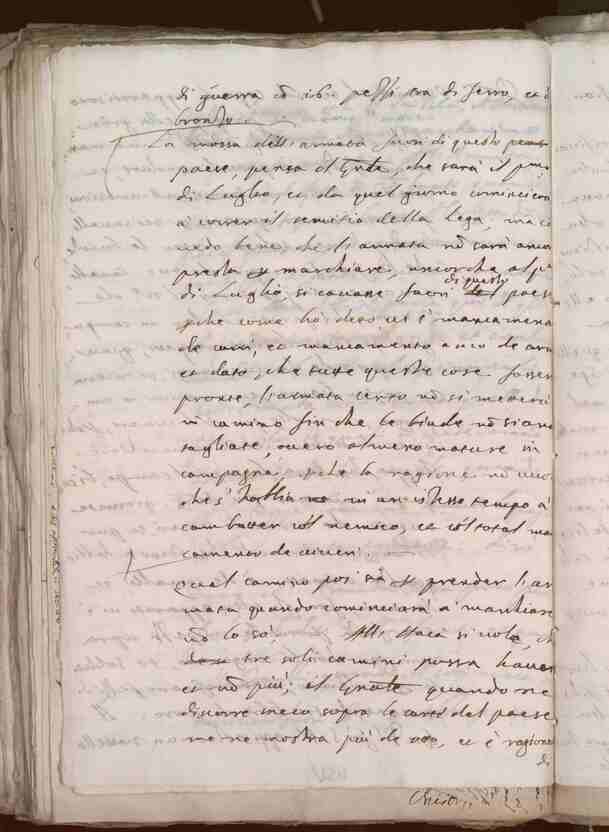 di guerra cō 16. pessi tra di ferro, et
bronzo.
La mossa dell'armata fuori di questo
paese, pensa il Gnāle, che sarà il
di Luglio, et da quel giorno
à correr il servitio della Lega, ma
vedo bene, che l'armata nō sarà
presto à marchiare, ancorche al
di Luglio, si cavasse fuori di questo paese
ꝑche come hò detto, vi è
de carri, et mancamento anco de
et dato, che tutte queste cose fossero
pronte, l'armata certo nō si
in camino fin che le biade nō siano
tagliate, overo almeno mature in
campagna, ꝑche la ragione nō vuole
che s'habbia in un istesso tempo à
combatter co'l nemico, et co'l total
camento de viveri.
Qual camino poi sia ꝑ prender l'ar
mata quando cominciarà à marchiare
nō lo so. si vole, ch
tre soli camini possa haver
et nō più; il Gnāle quando ne
discorre meco sopra le carte del paese,
me ne mostra più de otto, et è ragione
di